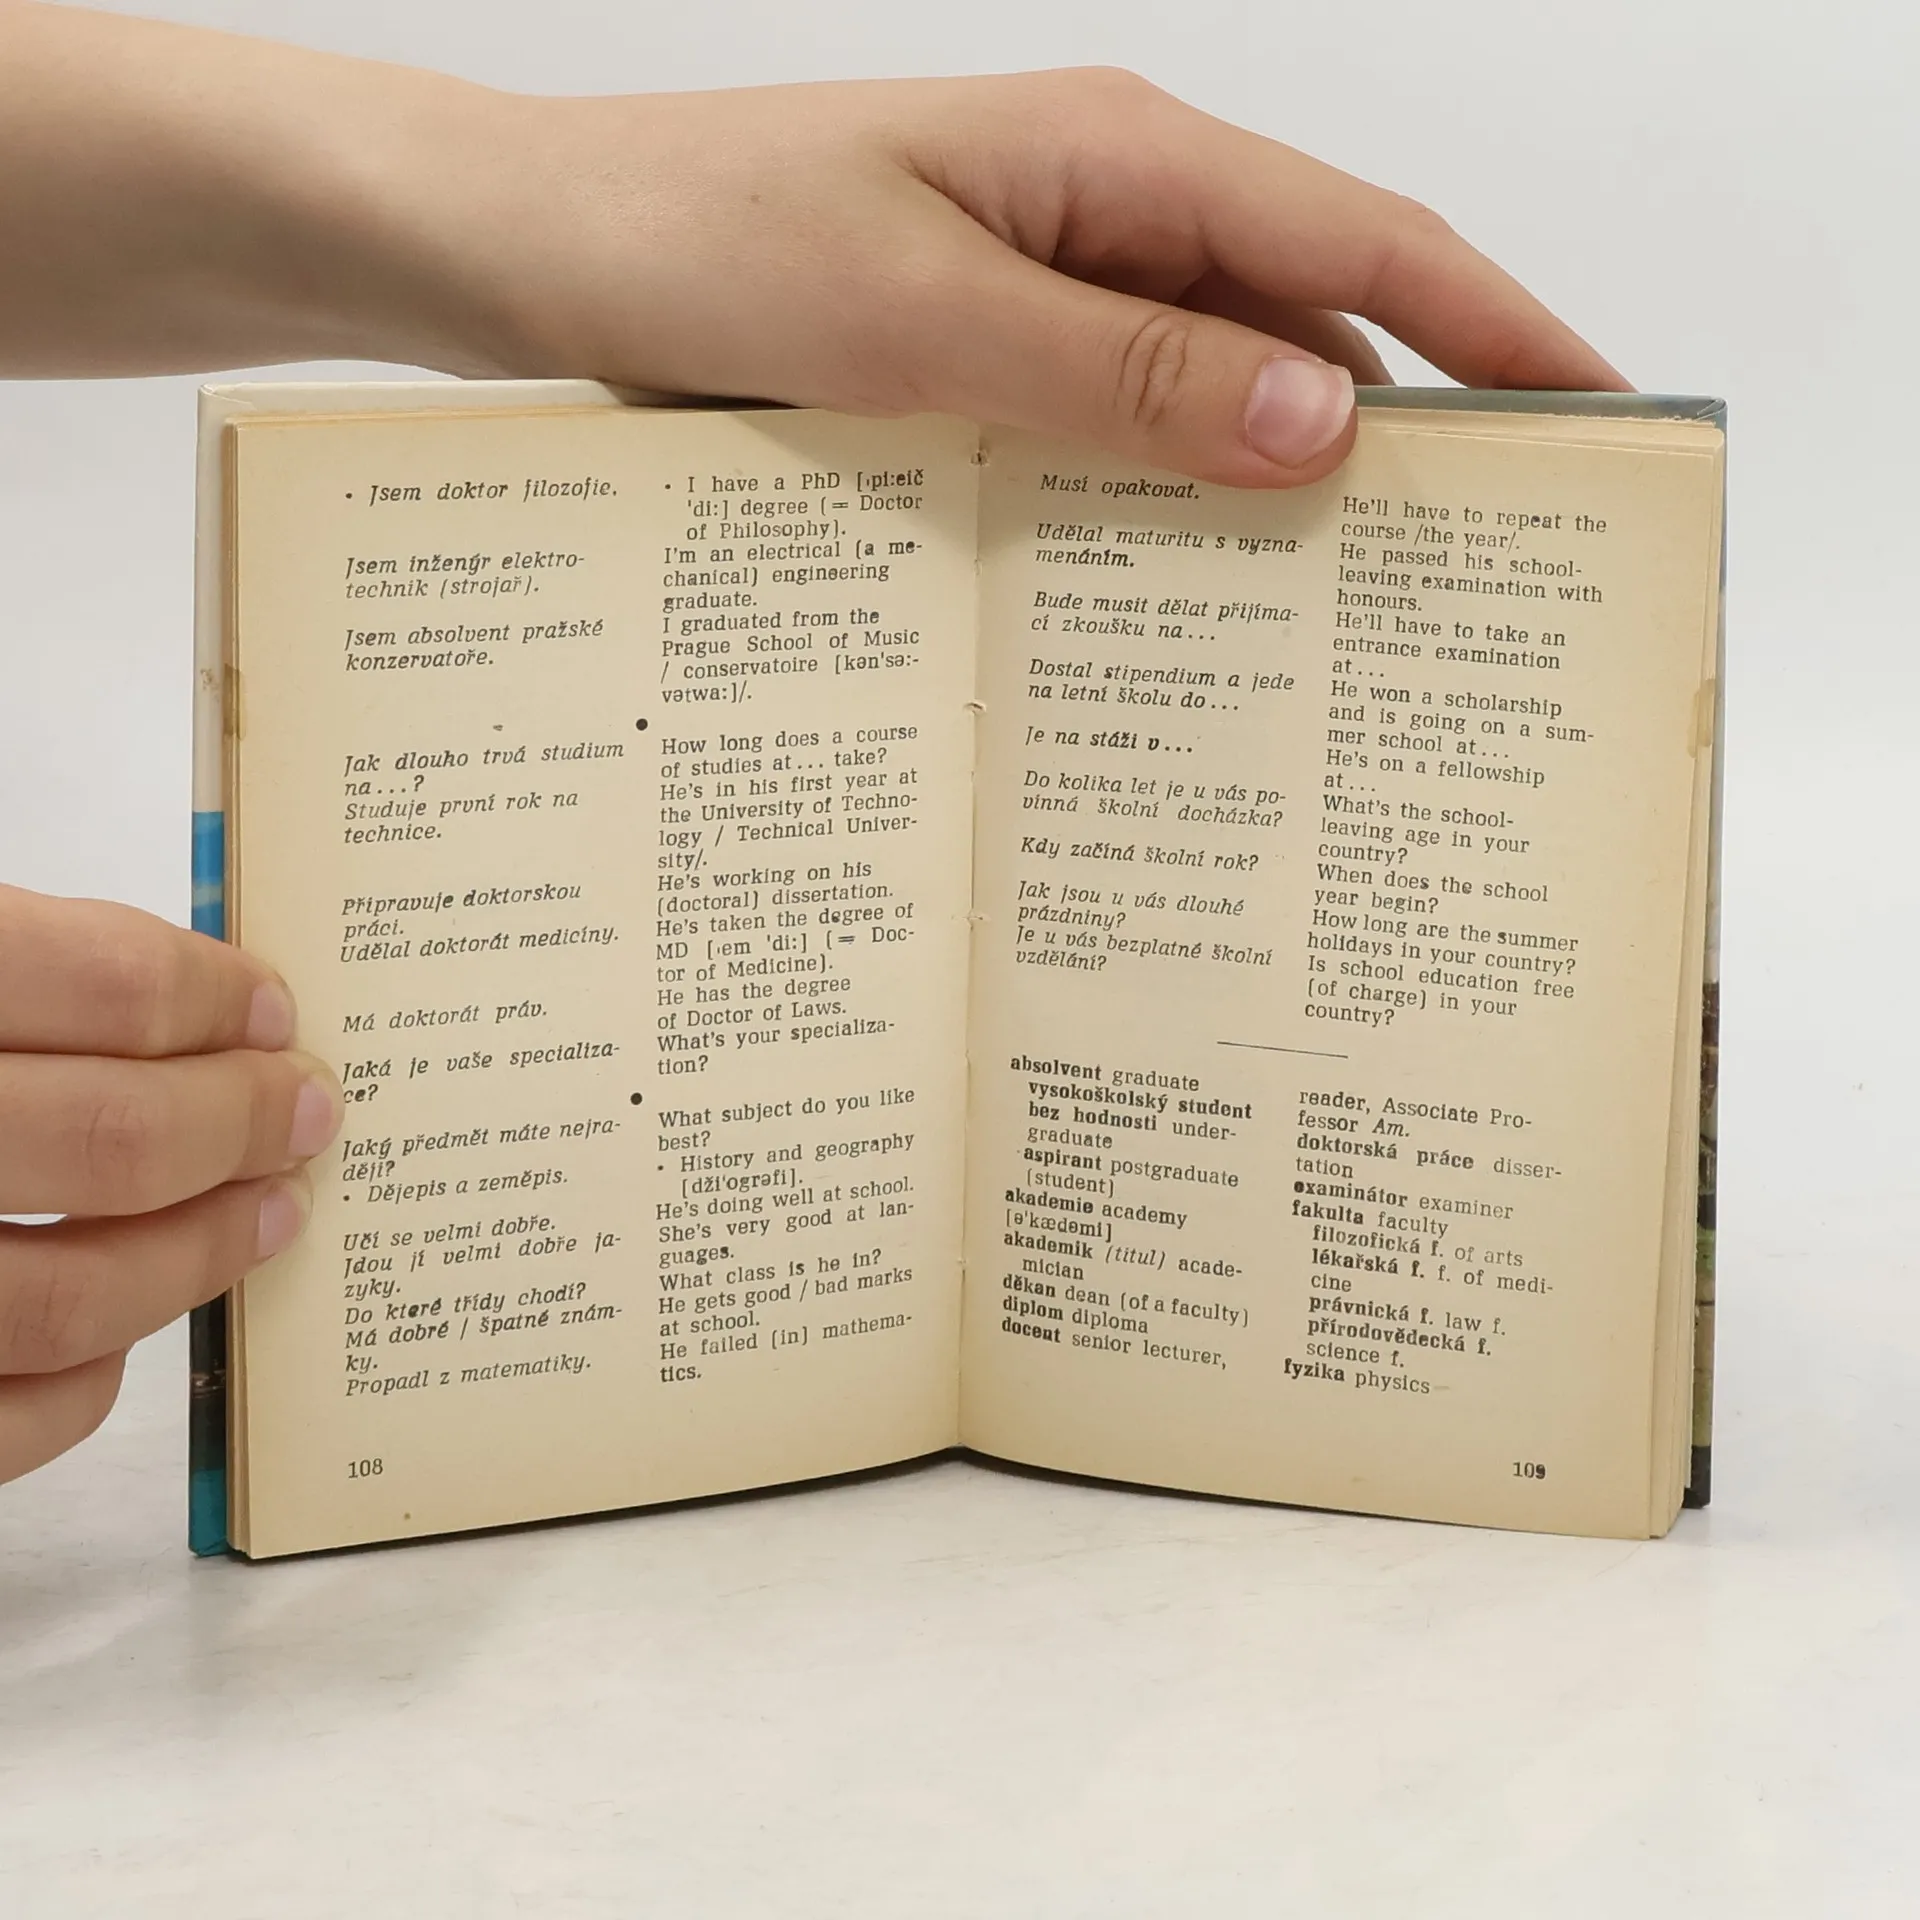 • Jsem doktor filozofie.
Jsem inženýr elektro-
technik (strojař).
Jsem absolvent pražské
konzervatoře.
Jak dlouho trvá studium
na...?
Studuje první rok na
technice.
Připravuje doktorskou
práci.
Udělal doktorát medicíny.
Má doktorát práv.
Jaká je vaše specializa-
ce?
Jaký předmět máte nejra-
ději?
• Dějepis a zeměpis.
Učí se velmi dobře.
Jdou jí velmi dobře ja-
zyky.
Do které třídy chodí?
Má dobré / špatné znám-
ky.
Propadl z matematiky.
• I have a PhD [ˌpi:eič
'di:] degree (= Doctor
of Philosophy).
I'm an electrical (a me-
chanical) engineering
graduate.
I graduated from the
Prague School of Music
/ conservatoire [kən'sə:-
vətwa:]/.
●
How long does a course
of studies at... take?
He's in his first year at
the University of Techno-
logy / Technical Univer-
sity/.
He's working on his
(doctoral) dissertation.
He's taken the degree of
MD [ˌem 'di:] (= Doc-
tor of Medicine).
He has the degree
of Doctor of Laws.
What's your specializa-
tion?
●
What subject do you like
best?
• History and geography
[dži'ogrəfi].
He's doing well at school.
She's very good at lan-
guages.
What class is he in?
He gets good / bad marks
at school.
He failed (in) mathema-
tics.
108
Musí opakovat.
Udělal maturitu s vyzna-
menáním.
Bude musit dělat přijíma-
cí zkoušku na...
Dostal stipendium a jede
na letní školu do...
Je na stáži v...
Do kolika let je u vás po-
vinná školní docházka?
Kdy začíná školní rok?
Jak jsou u vás dlouhé
prázdniny?
Je u vás bezplatné školní
vzdělání?
He'll have to repeat the
course /the year/.
He passed his school-
leaving examination with
honours.
He'll have to take an
entrance examination
at...
He won a scholarship
and is going on a sum-
mer school at...
He's on a fellowship
at...
What's the school-
leaving age in your
country?
When does the school
year begin?
How long are the summer
holidays in your country?
Is school education free
(of charge) in your
country?
absolvent graduate
vysokoškolský student
bez hodnosti under-
graduate
aspirant postgraduate
(student)
akademie academy
[ə'kædəmi]
akademik (titul) acade-
mician
děkan dean (of a faculty)
diplom diploma
docent senior lecturer,
reader, Associate Pro-
fessor Am.
doktorská práce disser-
tation
examinátor examiner
fakulta faculty
filozofická f. of arts
lékařská f. f. of medi-
cine
právnická f. law f.
přírodovědecká f.
science f.
fyzika physics
109